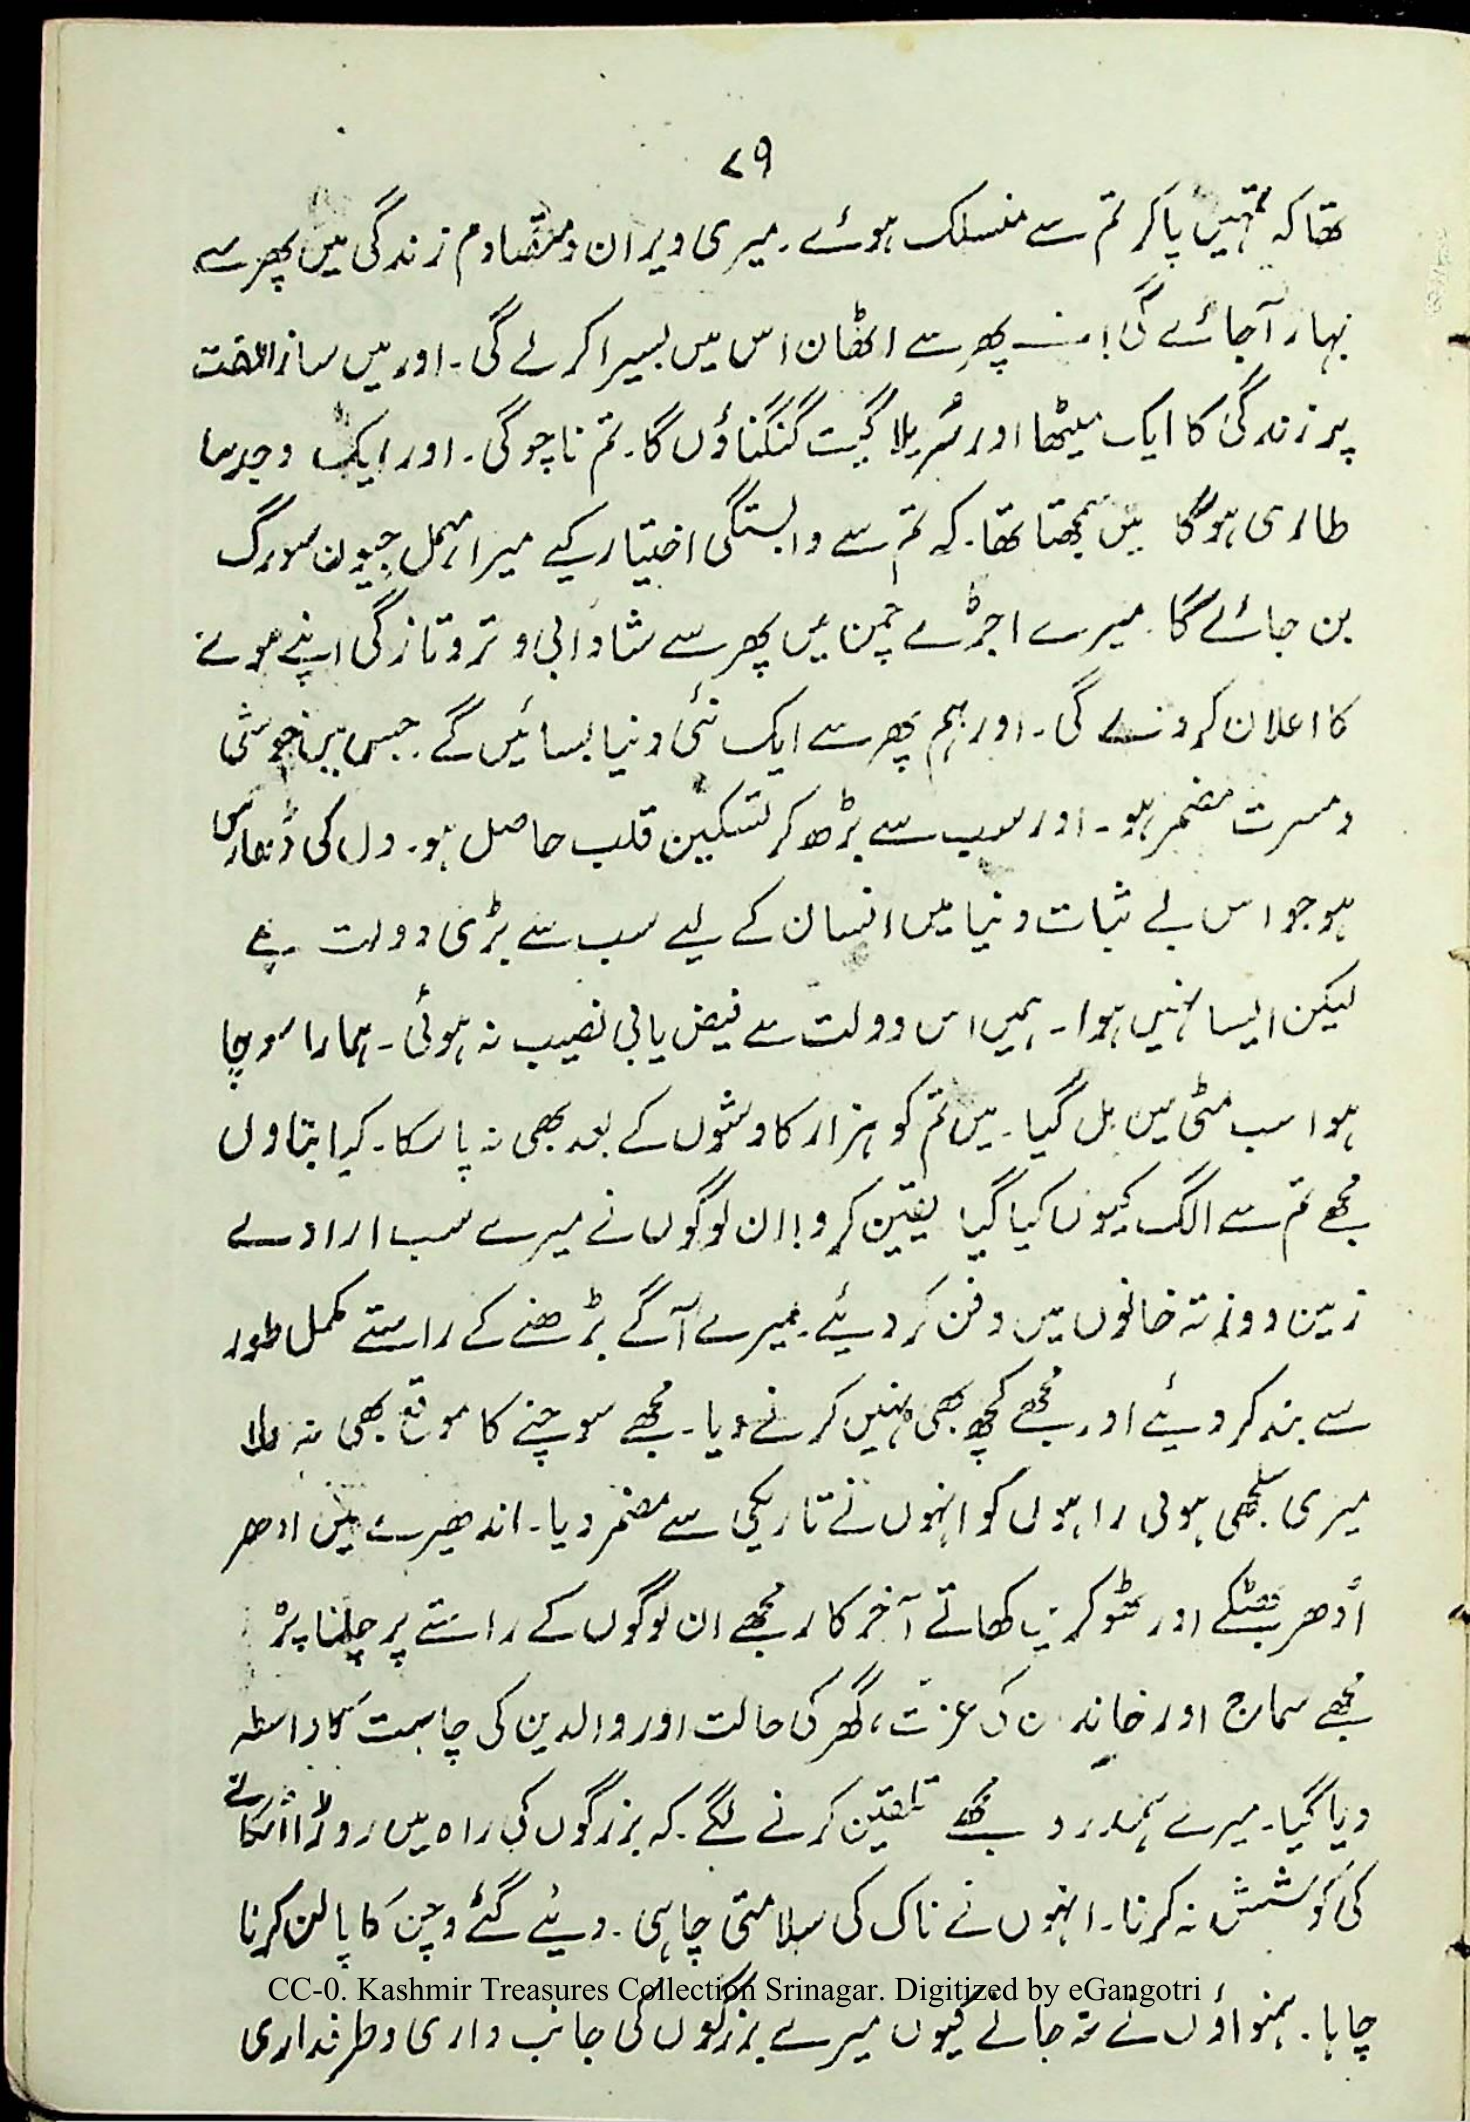 ۷۹
تھا کہ تمہیں پا کر تم سے منسلک ہوئے۔ میری ویران و متصادم زندگی میں پھر سے
بہار آجائے گی! پھر سے اٹھان اس میں بسیرا کر لے گی۔ اور میں ساز الفت
پر زندگی کا ایک میٹھا اور سُریلا گیت گنگناؤں گا۔ تم ناچو گی۔ اور ایک وجد سا
طاری ہوگا میں سمجھتا تھا۔ کہ تم سے وابستگی اختیار کیے میرا مہمل جیون سورگ
بن جائے گا۔ میرے اجڑے چمن میں پھر سے شادابی و تروتازگی اپنے ہونے
کا اعلان کر دے گی۔ اور ہم پھر سے ایک نئی دنیا بسائیں گے۔ جس میں خوشی
و مسرت مضمر ہو۔ اور سب سے بڑھ کر تسکین قلب حاصل ہو۔ دل کی ڈھارس
ہو جو اس بے ثبات دنیا میں انسان کے لیے سب سے بڑی دولت ہے
لیکن ایسا نہیں ہوا۔ ہمیں اس دولت سے فیض یابی نصیب نہ ہوئی۔ ہمارا سوچا
ہوا سب مٹی میں مل گیا۔ میں تم کو ہزار کاوشوں کے بعد بھی نہ پا سکا۔ کیا بتاوں
مجھے تم سے الگ کیوں کیا گیا یقین کرو! ان لوگوں نے میرے سب ارادے
زمین دوز تہ خانوں میں دفن کر دیئے۔ میرے آگے بڑھنے کے راستے مکمل طور
سے بند کر دیئے اور مجھے کچھ بھی نہیں کرنے دیا۔ مجھے سوچنے کا موقع بھی نہ ملا
میری سلجھی ہوئی راہوں کو انہوں نے تاریکی سے مضمر دیا۔ اندھیرے میں ادھر
اُدھر بھٹکے اور ٹھوکریں کھاتے آخر کار مجھے ان لوگوں کے راستے پر چلنا پڑ
مجھے سماج اور خاندان کی عزت، گھر کی حالت اور والدین کی چاہت کا واسطہ
دیا گیا۔ میرے ہمدرد مجھے تلقین کرنے لگے۔ کہ بزرگوں کی راہ میں روڑا اٹکانے
کی کوشش نہ کرنا۔ انہوں نے ناک کی سلامتی چاہی۔ دیئے گئے وچن کا پالن کرنا
CC-0. Kashmir Treasures Collection Srinagar. Digitized by eGangotri
چاہا۔ ہمنواؤں نے نہ جانے کیوں میرے بزرگوں کی جانب داری و طرفداری